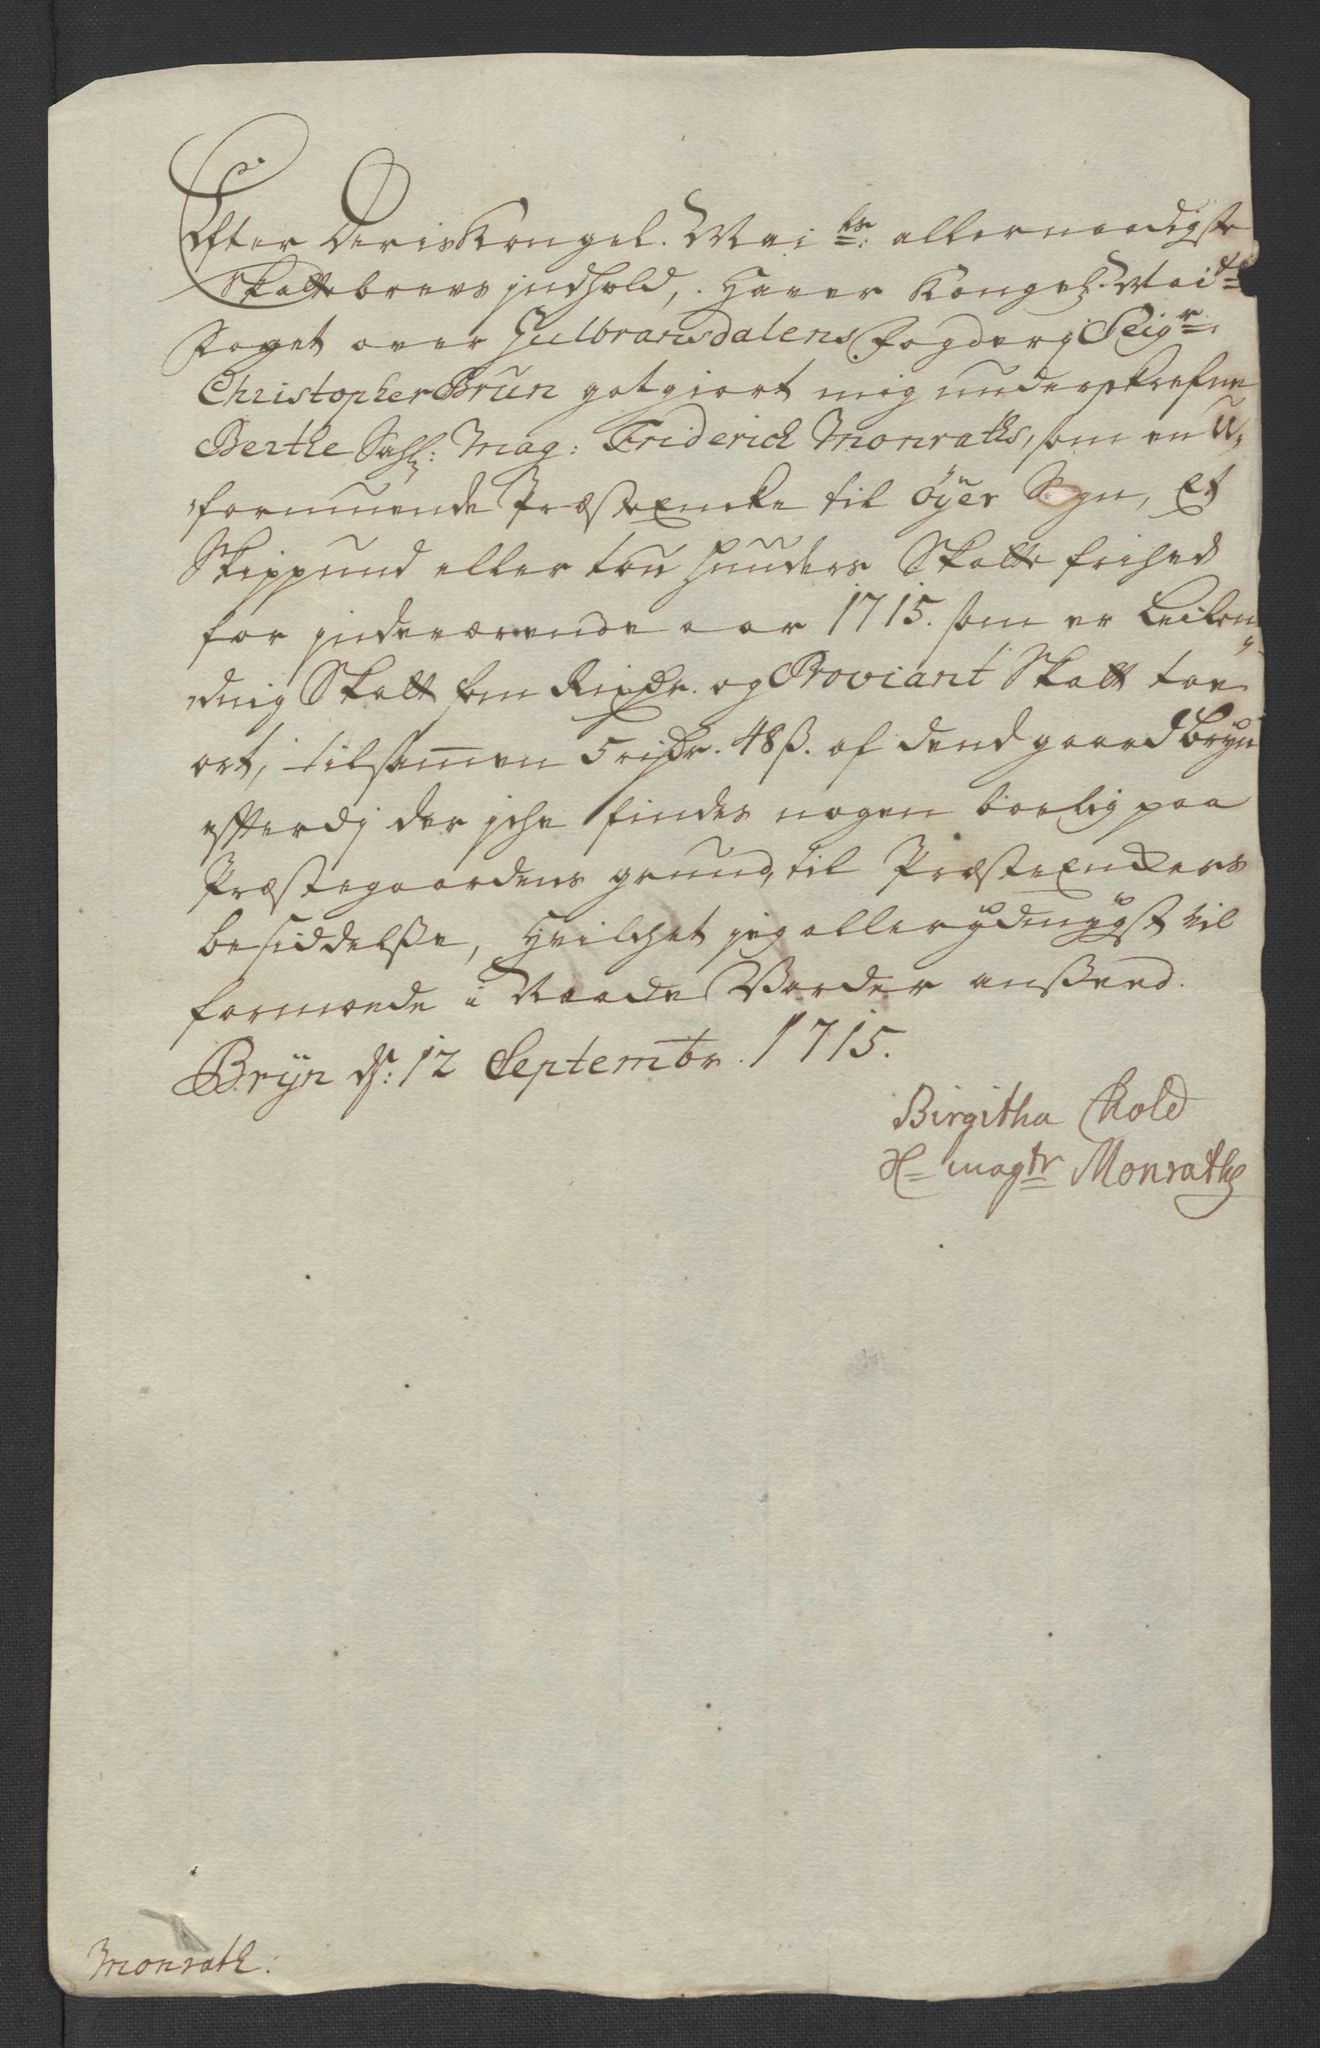 Efter Deris Kongel. Mai ts: allernaadigste
Skattebrevs jndhold, Haver Kongel. Mai ts
Foget over Gulbransdalens Fogderj Seigr:
Christopher Brun gotgiort mig underskrefne
Berthe Sahl: Mag: Friderich Monraths, som en U-
formuende Præste Encke til Øyer Sogn, Et
Skippund eller toe Hunders Skatte frihed
for jndeværende aar 1715. som er Leilen-
ding Skatt fem Rixdr. og Proviant Skatt toe
ort, tilsammen 5 rixdr. 48 ß. af dend gaard Bryn
effterdj der jche findes nogen boelig paa
Præstegaardens grund, til Præste Enckers
besiddelße, Hvilchet jeg allerydmygst vil
formode i Naade Vorder anßeed.
Bryn ds: 12 Septembr. 1715.
Birgitha Kold
Hr magtr Monraths
Monrath: